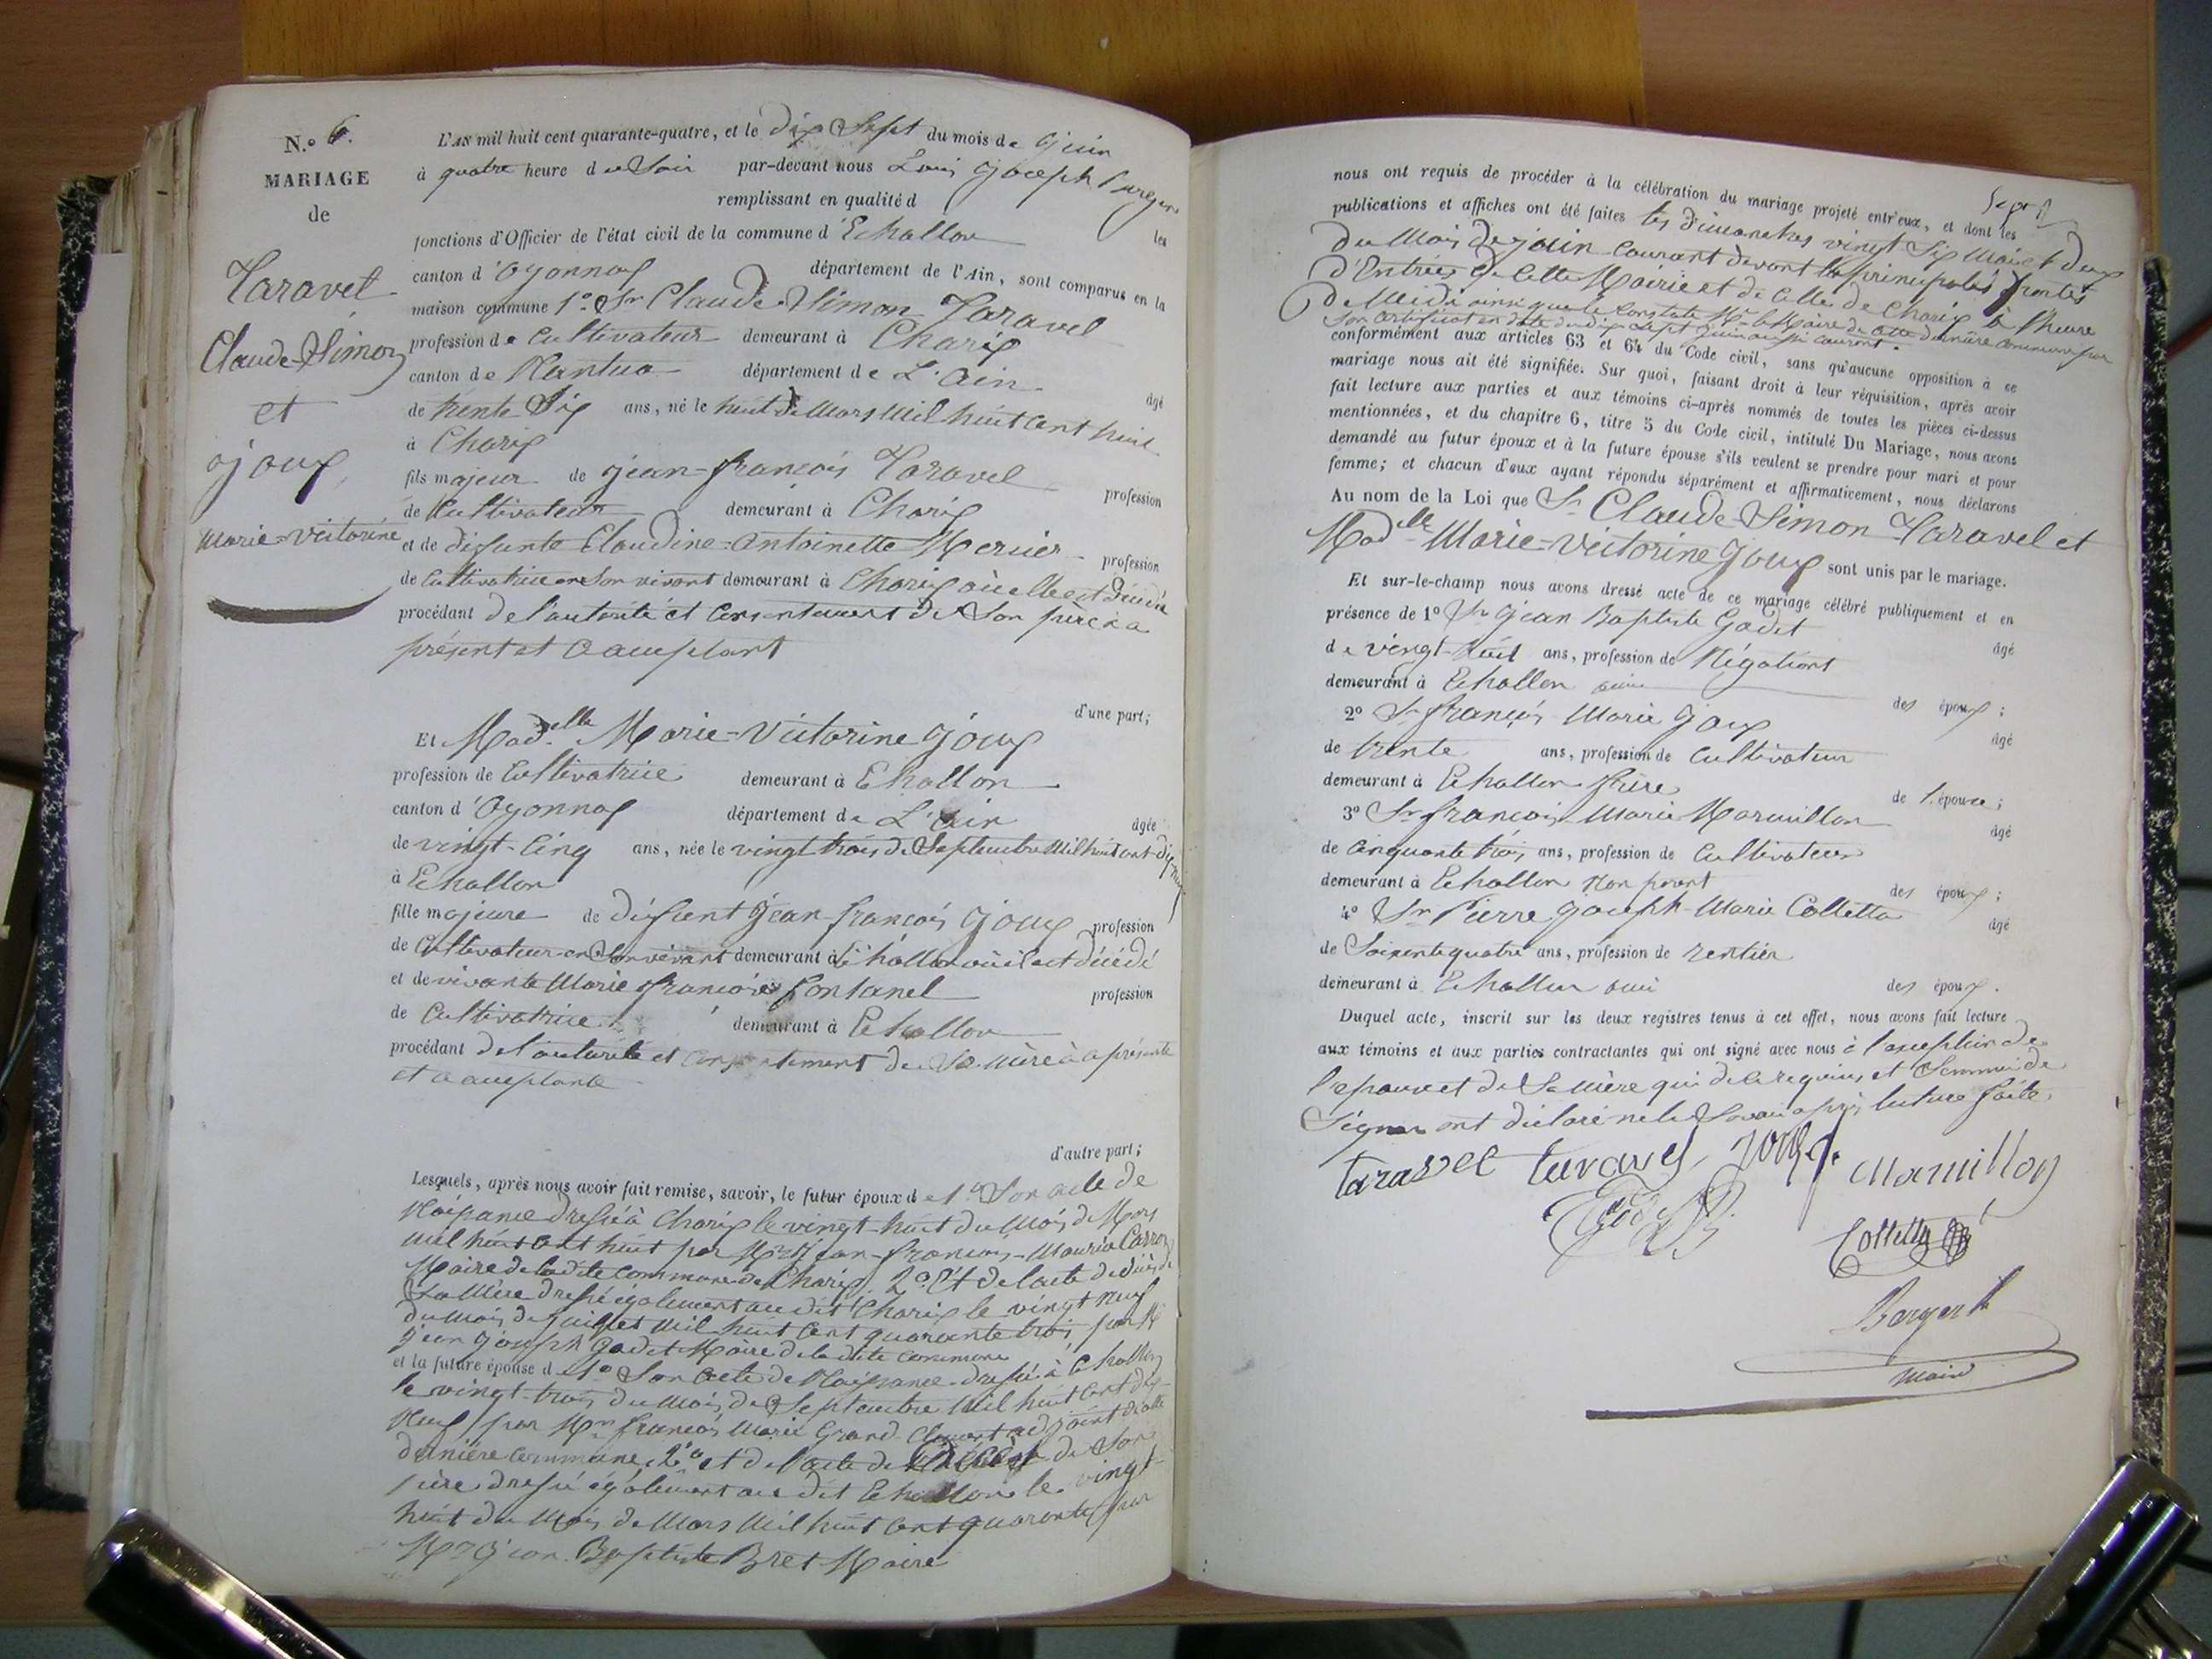 N.o 6.
MARIAGE
de
Taravel
Claude-Simon
et
Joux
Marie-Victorine
L'AN mil huit cent quarante-quatre, et le dix Sept du mois de Juin
à quatre heure du Soir par-devant nous Louis Joseph
remplissant en qualité d les
fonctions d'Officier de l'état civil de la commune d'Echallon
canton d'Oyonnax département de l'Ain, sont comparus en la
maison commune 1.o Sr Claude-Simon Taravel
profession de Cultivateur demeurant à Charix
canton de Nantua département de L'Ain âgé
de trente Six ans, né le huit de Mars Mil huit Cent huit
à Charix
fils majeur de Jean-François Taravel profession
de Cultivateur demeurant à Charix
et de défunte Claudine-Antoinette Mercier profession
de Cultivatrice en Son vivant demeurant à Charix où elle est décédée
procédant de l'autorité et Consentement de Son père à ce
présent et acceptant
d'une part;
Et Madelle Marie-Victorine Joux
profession de Cultivatrice demeurant à Echallon
canton d'Oyonnax département de L'Ain âgée
de vingt-Cinq ans, née le vingt trois de Septembre Mil huit cent dix neuf
à Echallon
fille majeure de défunt Jean-François Joux profession
de Cultivateur en Son vivant demeurant à Echallon où il est décédé
et de vivante Marie Françoise Fontanel profession
de Cultivatrice demeurant à Echallon
procédant de l'autorité et Consentement de Sa Mère à ce présente
et acceptante
d'autre part;
Lesquels, après nous avoir fait remise, savoir, le futur époux de 1.o Son acte de
Naissance dressé à Charix le vingt-huit du Mois de Mars
Mil huit Cent huit par Mr Jean-François-Maurice Carron
Maire de la dite Commune de Charix, 2.o Et de l'acte de décès de
Sa Mère dressé également au dit Charix le vingt neuf
du Mois de Juillet Mil huit Cent quarante trois par Mr
Jean Joseph Godet Maire de la dite Commune
et la future épouse de 1.o Son Acte de Naissance dressé à Echallon
le vingt-trois du Mois de Septembre Mil huit Cent dix-
Neuf par Mr François Marie Grand-Clément adjoint de cette
dernière Commune, 2.o et de l'acte de Décès de Son
père dressé également au dit Echallon le vingt
huit du Mois de Mars Mil huit Cent quarante par
Mr Jean-Baptiste Bret Maire
Sept
nous ont requis de procéder à la célébration du mariage projeté entr'eux, et dont les
publications et affiches ont été faites les dimanches vingt Six Mai et deux
du Mois de Juin Courant devant les principales portes
d'Entrées de Cette Mairie et de Celle de Charix à l'heure
de Midi ainsi que le Constate Mr le Maire de cette dernière Commune par
Son Certificat en date du dix Sept Juin aussi Courant.
conformément aux articles 63 et 64 du Code civil, sans qu'aucune opposition à ce
mariage nous ait été signifiée. Sur quoi, faisant droit à leur réquisition, après avoir
fait lecture aux parties et aux témoins ci-après nommés de toutes les pièces ci-dessus
mentionnées, et du chapitre 6, titre 5 du Code civil, intitulé Du Mariage, nous avons
demandé au futur époux et à la future épouse s'ils veulent se prendre pour mari et pour
femme; et chacun d'eux ayant répondu séparément et affirmativement, nous déclarons
Au nom de la Loi que Sr Claude-Simon Taravel et
Madelle Marie-Victorine Joux sont unis par le mariage.
Et sur-le-champ nous avons dressé acte de ce mariage célébré publiquement et en
présence de 1o Sr Jean Baptiste Godet âgé
de vingt-huit ans, profession de Négotiant
demeurant à Echallon ami des époux;
2o Sr François Marie Joux âgé
de trente ans, profession de Cultivateur
demeurant à Echallon frère de l'épouse;
3o Sr François Marie Marmillon âgé
de Cinquante trois ans, profession de Cultivateur
demeurant à Echallon Non parent des époux;
4o Sr Pierre Joseph-Marie Colletta âgé
de Soixante quatre ans, profession de rentier
demeurant à Echallon ami des époux.
Duquel acte, inscrit sur les deux registres tenus à cet effet, nous avons fait lecture
aux témoins et aux parties contractantes qui ont signé avec nous à l'exception de
l'épouse et de Sa Mère qui de ce requises et Sommées de
Signer ont déclaré ne le Savoir après lecture faite.
taravel taravel Joux f. Marmillon
Godet JB
Colletta
Maire